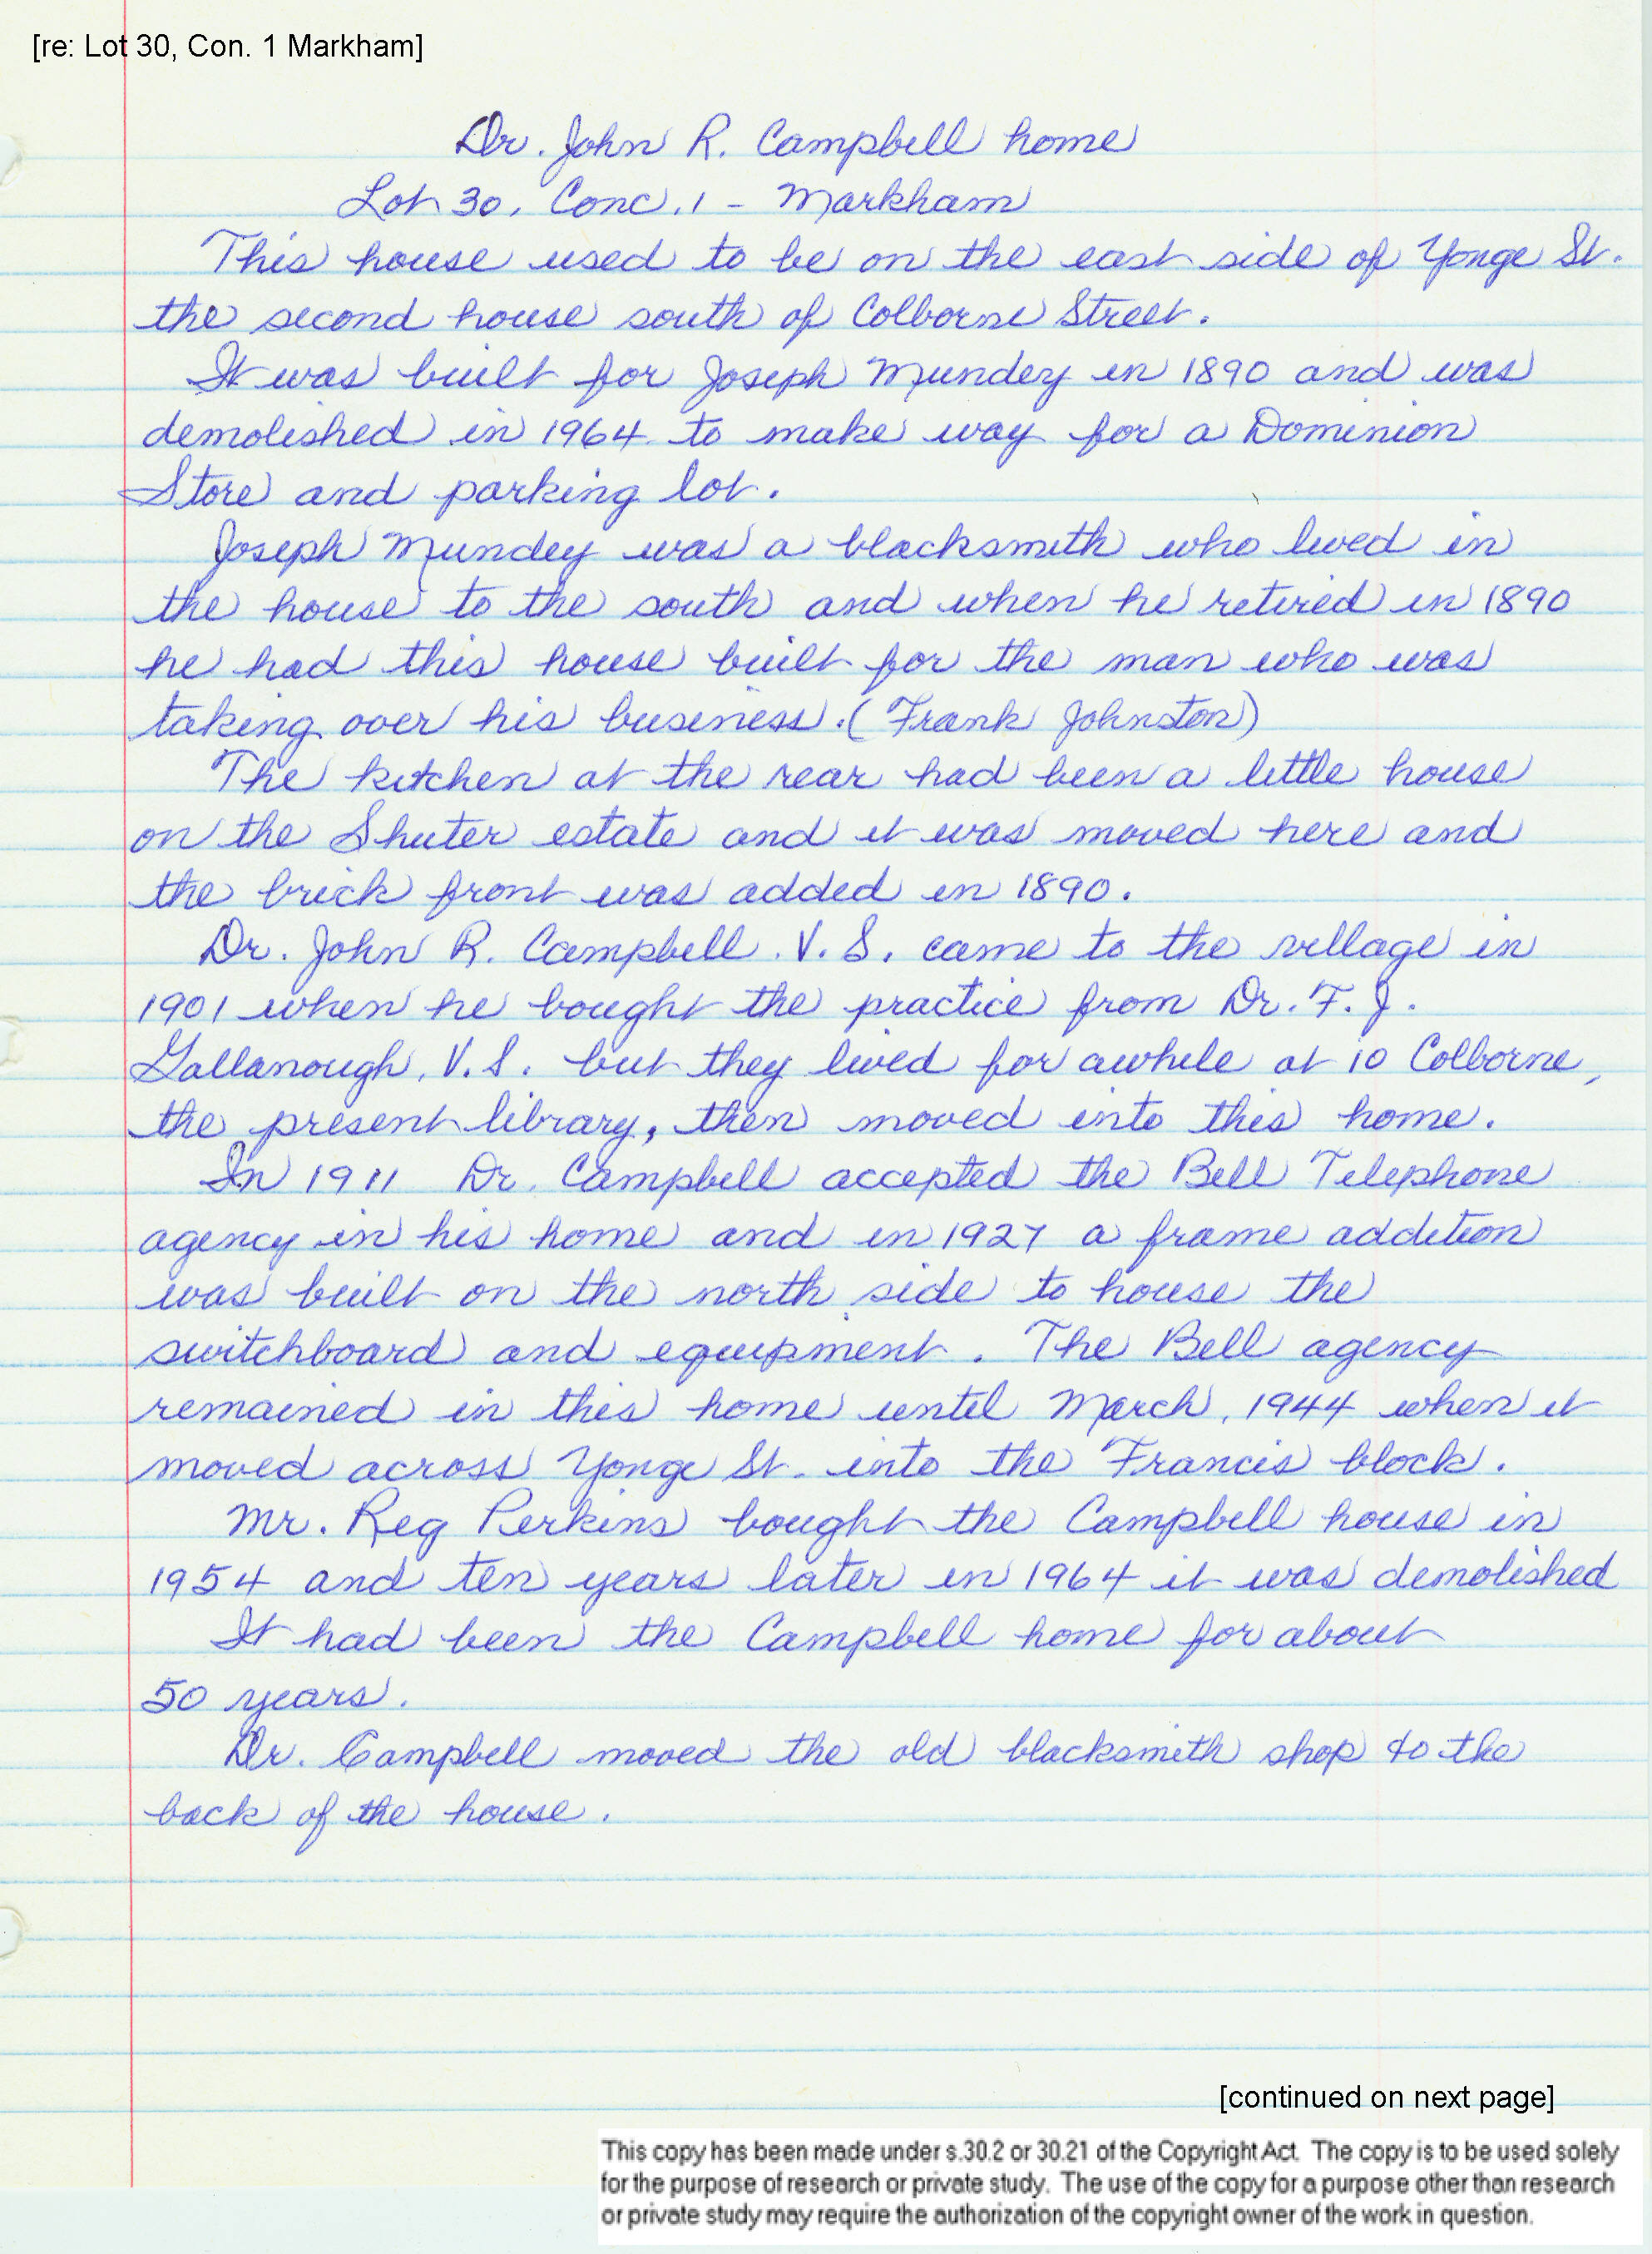 [re: Lot 30, Con. 1 Markham]
Dr. John R. Campbell home
Lot 30, Conc. 1 - Markham
This house used to be on the east side of Yonge St.
the second house south of Colborne Street.
It was built for Joseph Mundey in 1890 and was
demolished in 1964 to make way for a Dominion
Store and parking lot.
Joseph Mundey was a blacksmith who lived in
the house to the south and when he retired in 1890
he had this house built for the man who was
taking over his business. (Frank Johnston)
The kitchen at the rear had been a little house
on the Shuter estate and it was moved here and
the brick front was added in 1890.
Dr. John R. Campbell. V. S. came to the village in
1901 when he bought the practice from Dr. F. J.
Gallanough, V. S. but they lived for awhile at 10 Colborne,
the present library, then moved into this home.
In 1911 Dr. Campbell accepted the Bell Telephone
agency in his home and in 1927 a frame addition
was built on the north side to house the
switchboard and equipment. The Bell agency
remained in this home until March, 1944 when it
moved across Yonge St. into the Francis block.
Mr. Reg Perkins bought the Campbell house in
1954 and ten years later in 1964 it was demolished
It had been the Campbell home for about
50 years.
Dr. Campbell moved the old blacksmith shop to the
back of the house.
[continued on next page]
This copy has been made under s.30.2 or 30.21 of the Copyright Act. The copy is to be used solely
for the purpose of research or private study. The use of the copy for a purpose other than research
or private study may require the authorization of the copyright owner of the work in question.